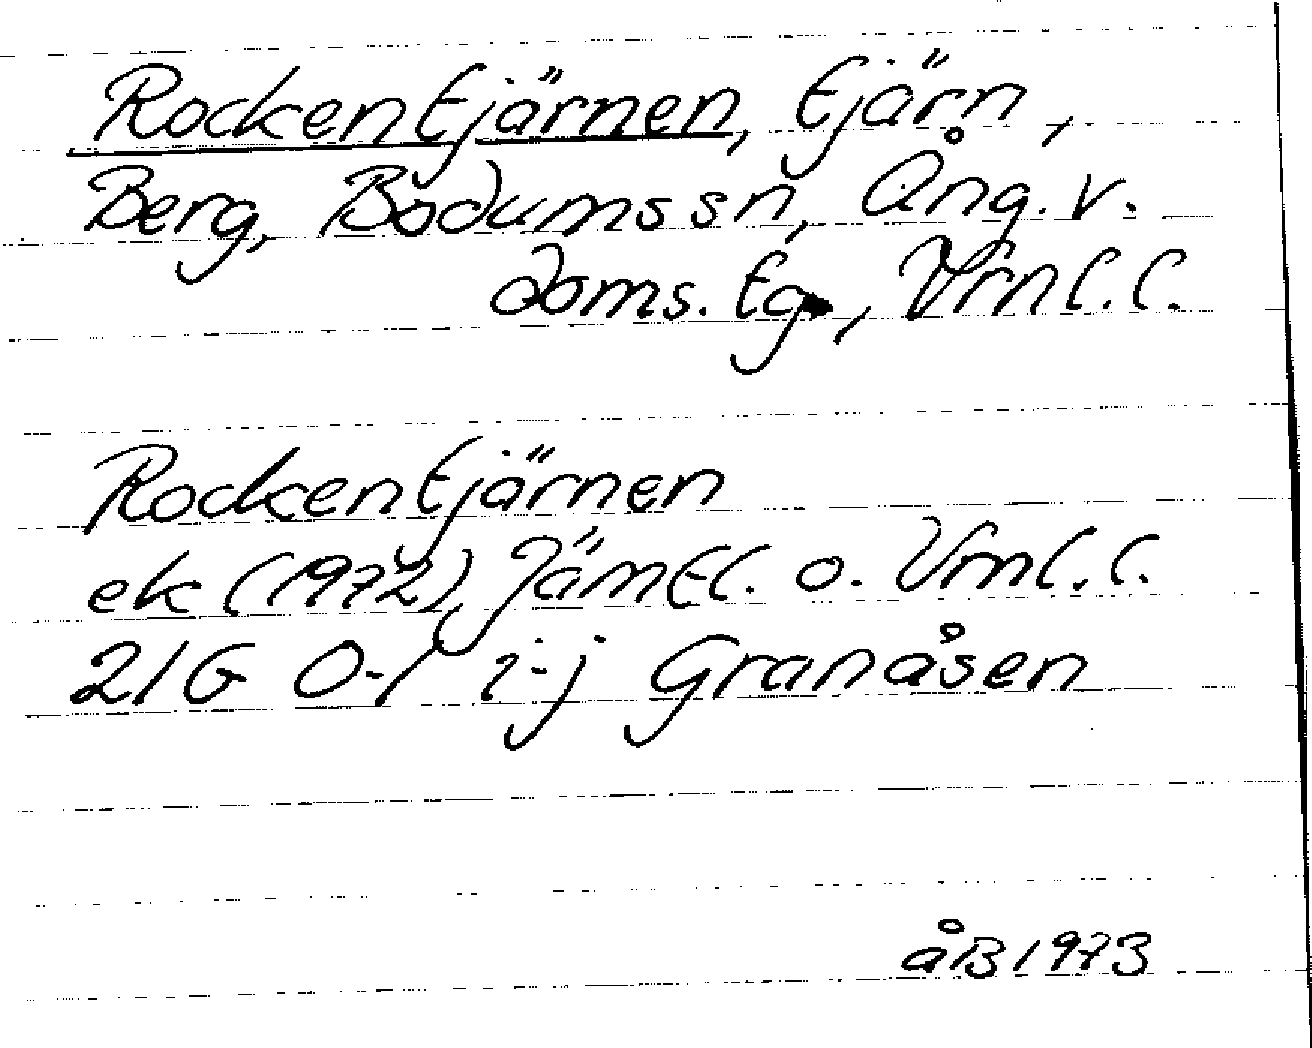 Rockentjärnen, tjärn,
Berg, Bodums sn, Ång. v.
doms. tg., Vrnl. l.
Rockentjärnen
ek (1972), Jämtl. o. Vrnl. l.
21G 0-1 i-j Granåsen
åB 1973